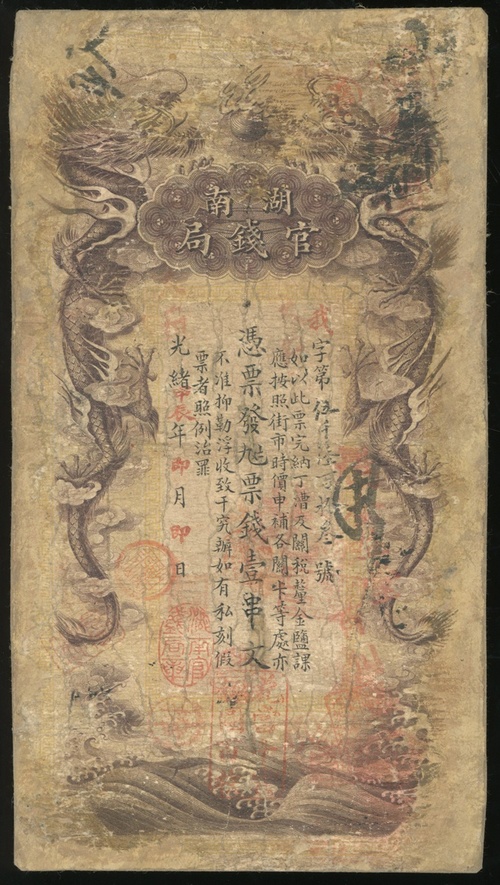 湖南
官錢局
我字第伍仟陸百拾叁號
如以此票完納丁漕及關稅釐金鹽課
應按照街市時價申補各關卡等處亦
憑票發足票錢壹串文
不准抑勒浮收致干究辦如有私刻假
票者照例治罪
光緒甲辰年 即 月 即 日